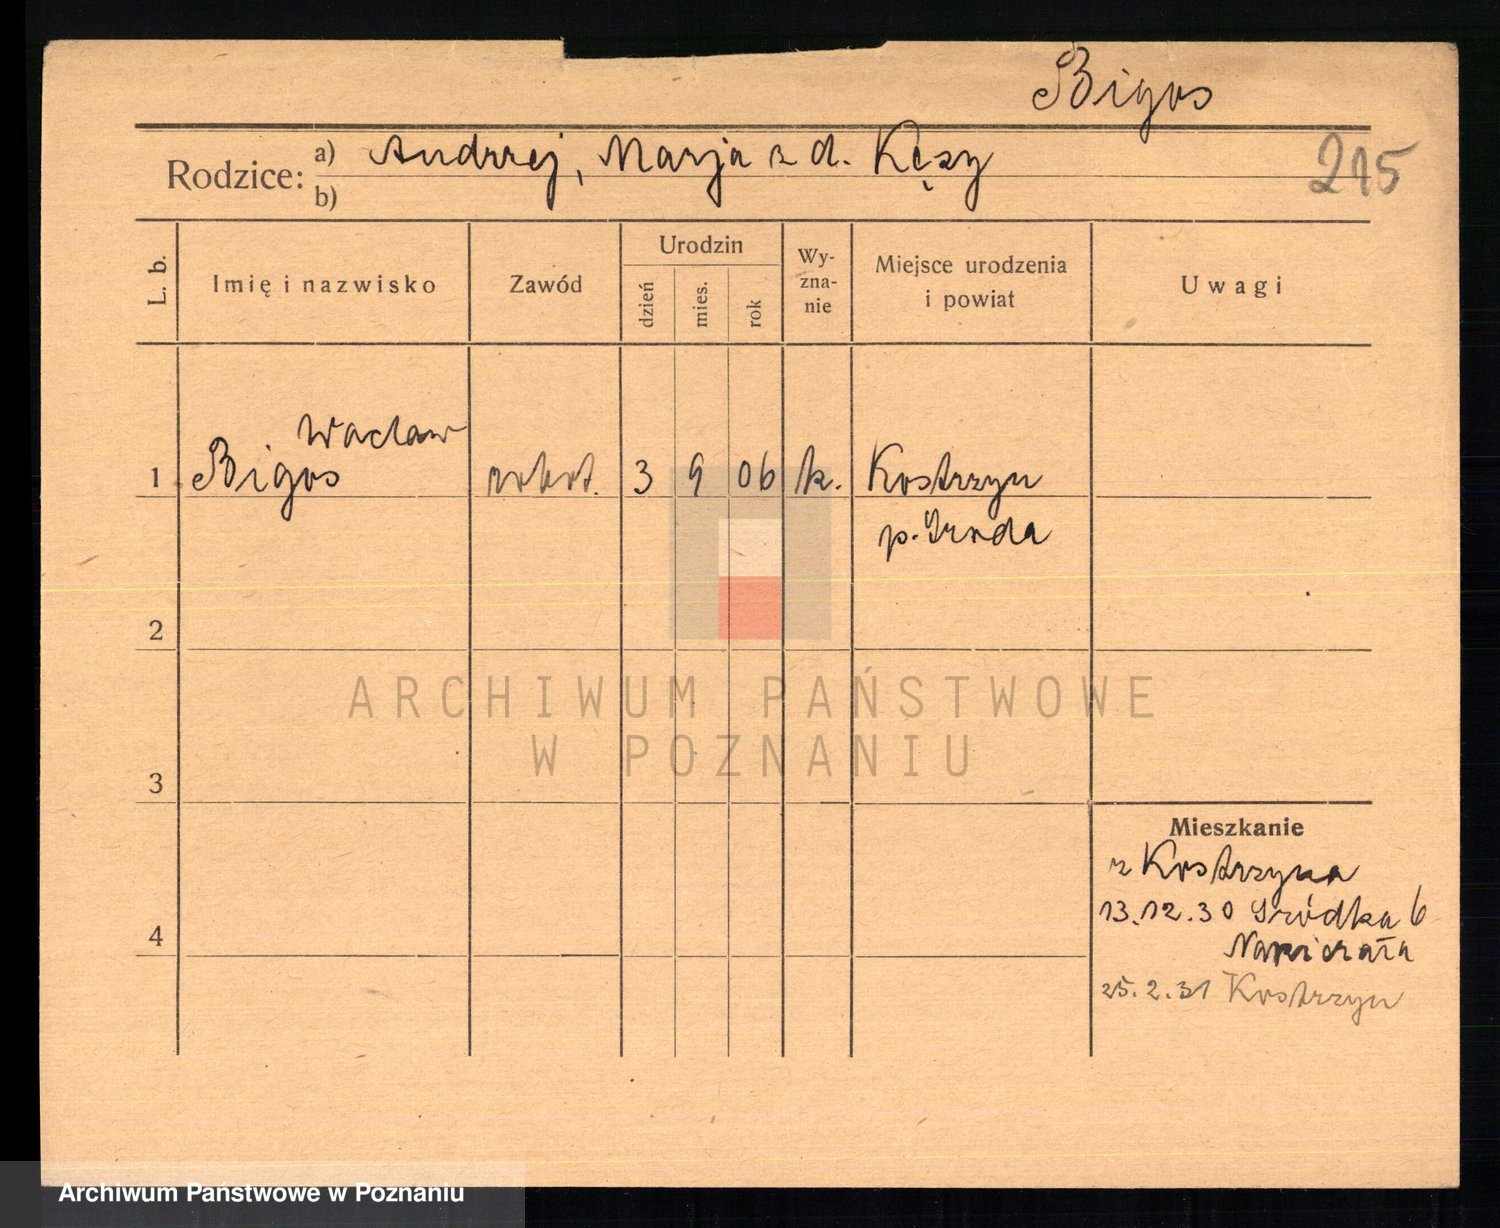 Bigos
Rodzice: a) Andrzej, Marja z d. Kęsy
b)
215
L. b.
Imię i nazwisko
Zawód
Urodzin
dzień
mies.
rok
Wy-
zna-
nie
Miejsce urodzenia
i powiat
Uwagi
Wacław
1 Bigos robot. 3 9 06 k. Kostrzyn
p. Środa
2
3
4
Mieszkanie
z Kostrzyna
13.12.30 Śródka 6
Napierała
25.2.31 Kostrzyn
ARCHIWUM PAŃSTWOWE
W POZNANIU
Archiwum Państwowe w Poznaniu